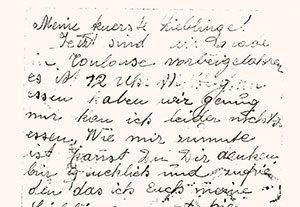 Meine kuerste Lieblinge!
Jetzt sind wir gerade
in Toulouse vorbeigefahren
es ist 12 Uhr
essen haben wir genug
nur kan ich leider nichts
essen. Wie mir zumute
ist kanst Du Dir denken
bin gluecklich und zufrie
den das ich Euch meine